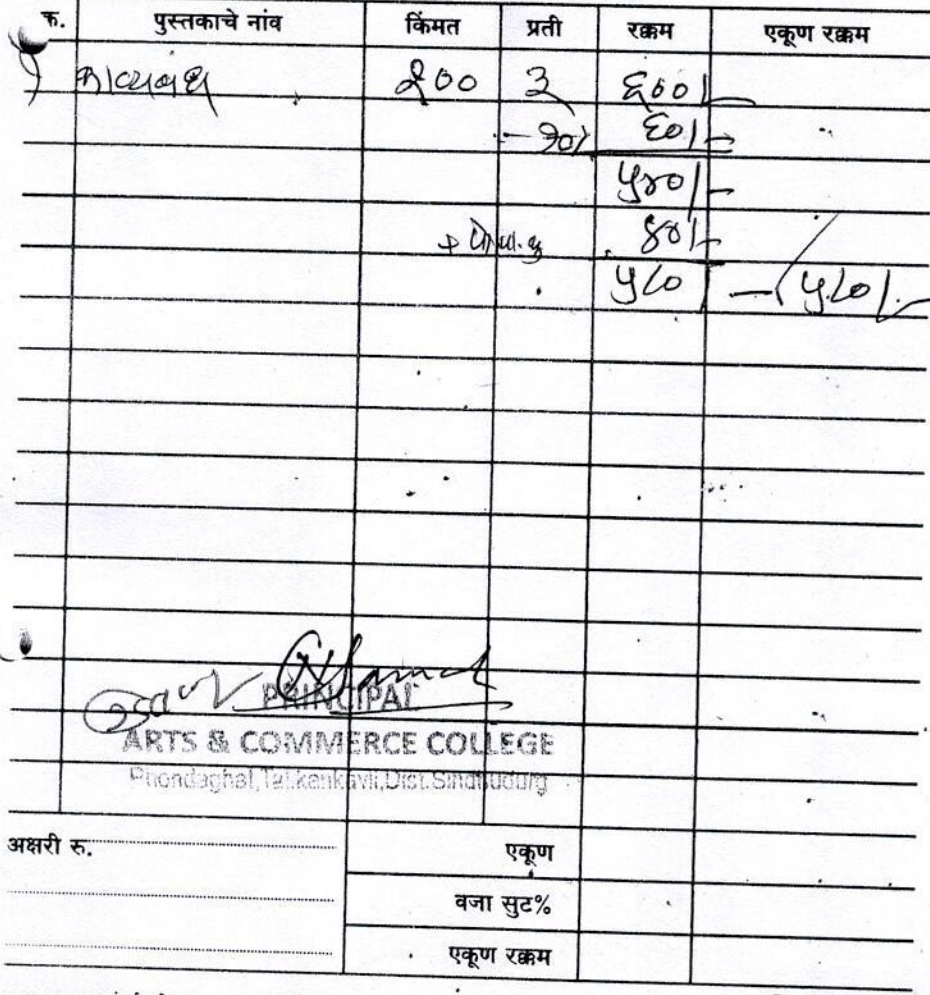 क्र. पुस्तकाचे नांव किंमत प्रती रक्कम एकूण रक्कम
१) काव्यगंध २०० ३ ६००/-
- १०% ६०/-
५४०/-
+ पो.पा.कु ४०/-
५८०/- ५८०/-
PRINCIPAL
ARTS & COMMERCE COLLEGE
Phondaghat, Tal.kankavli, Dist.Sindhudurg
अक्षरी रु. एकूण
वजा सुट%
एकूण रक्कम